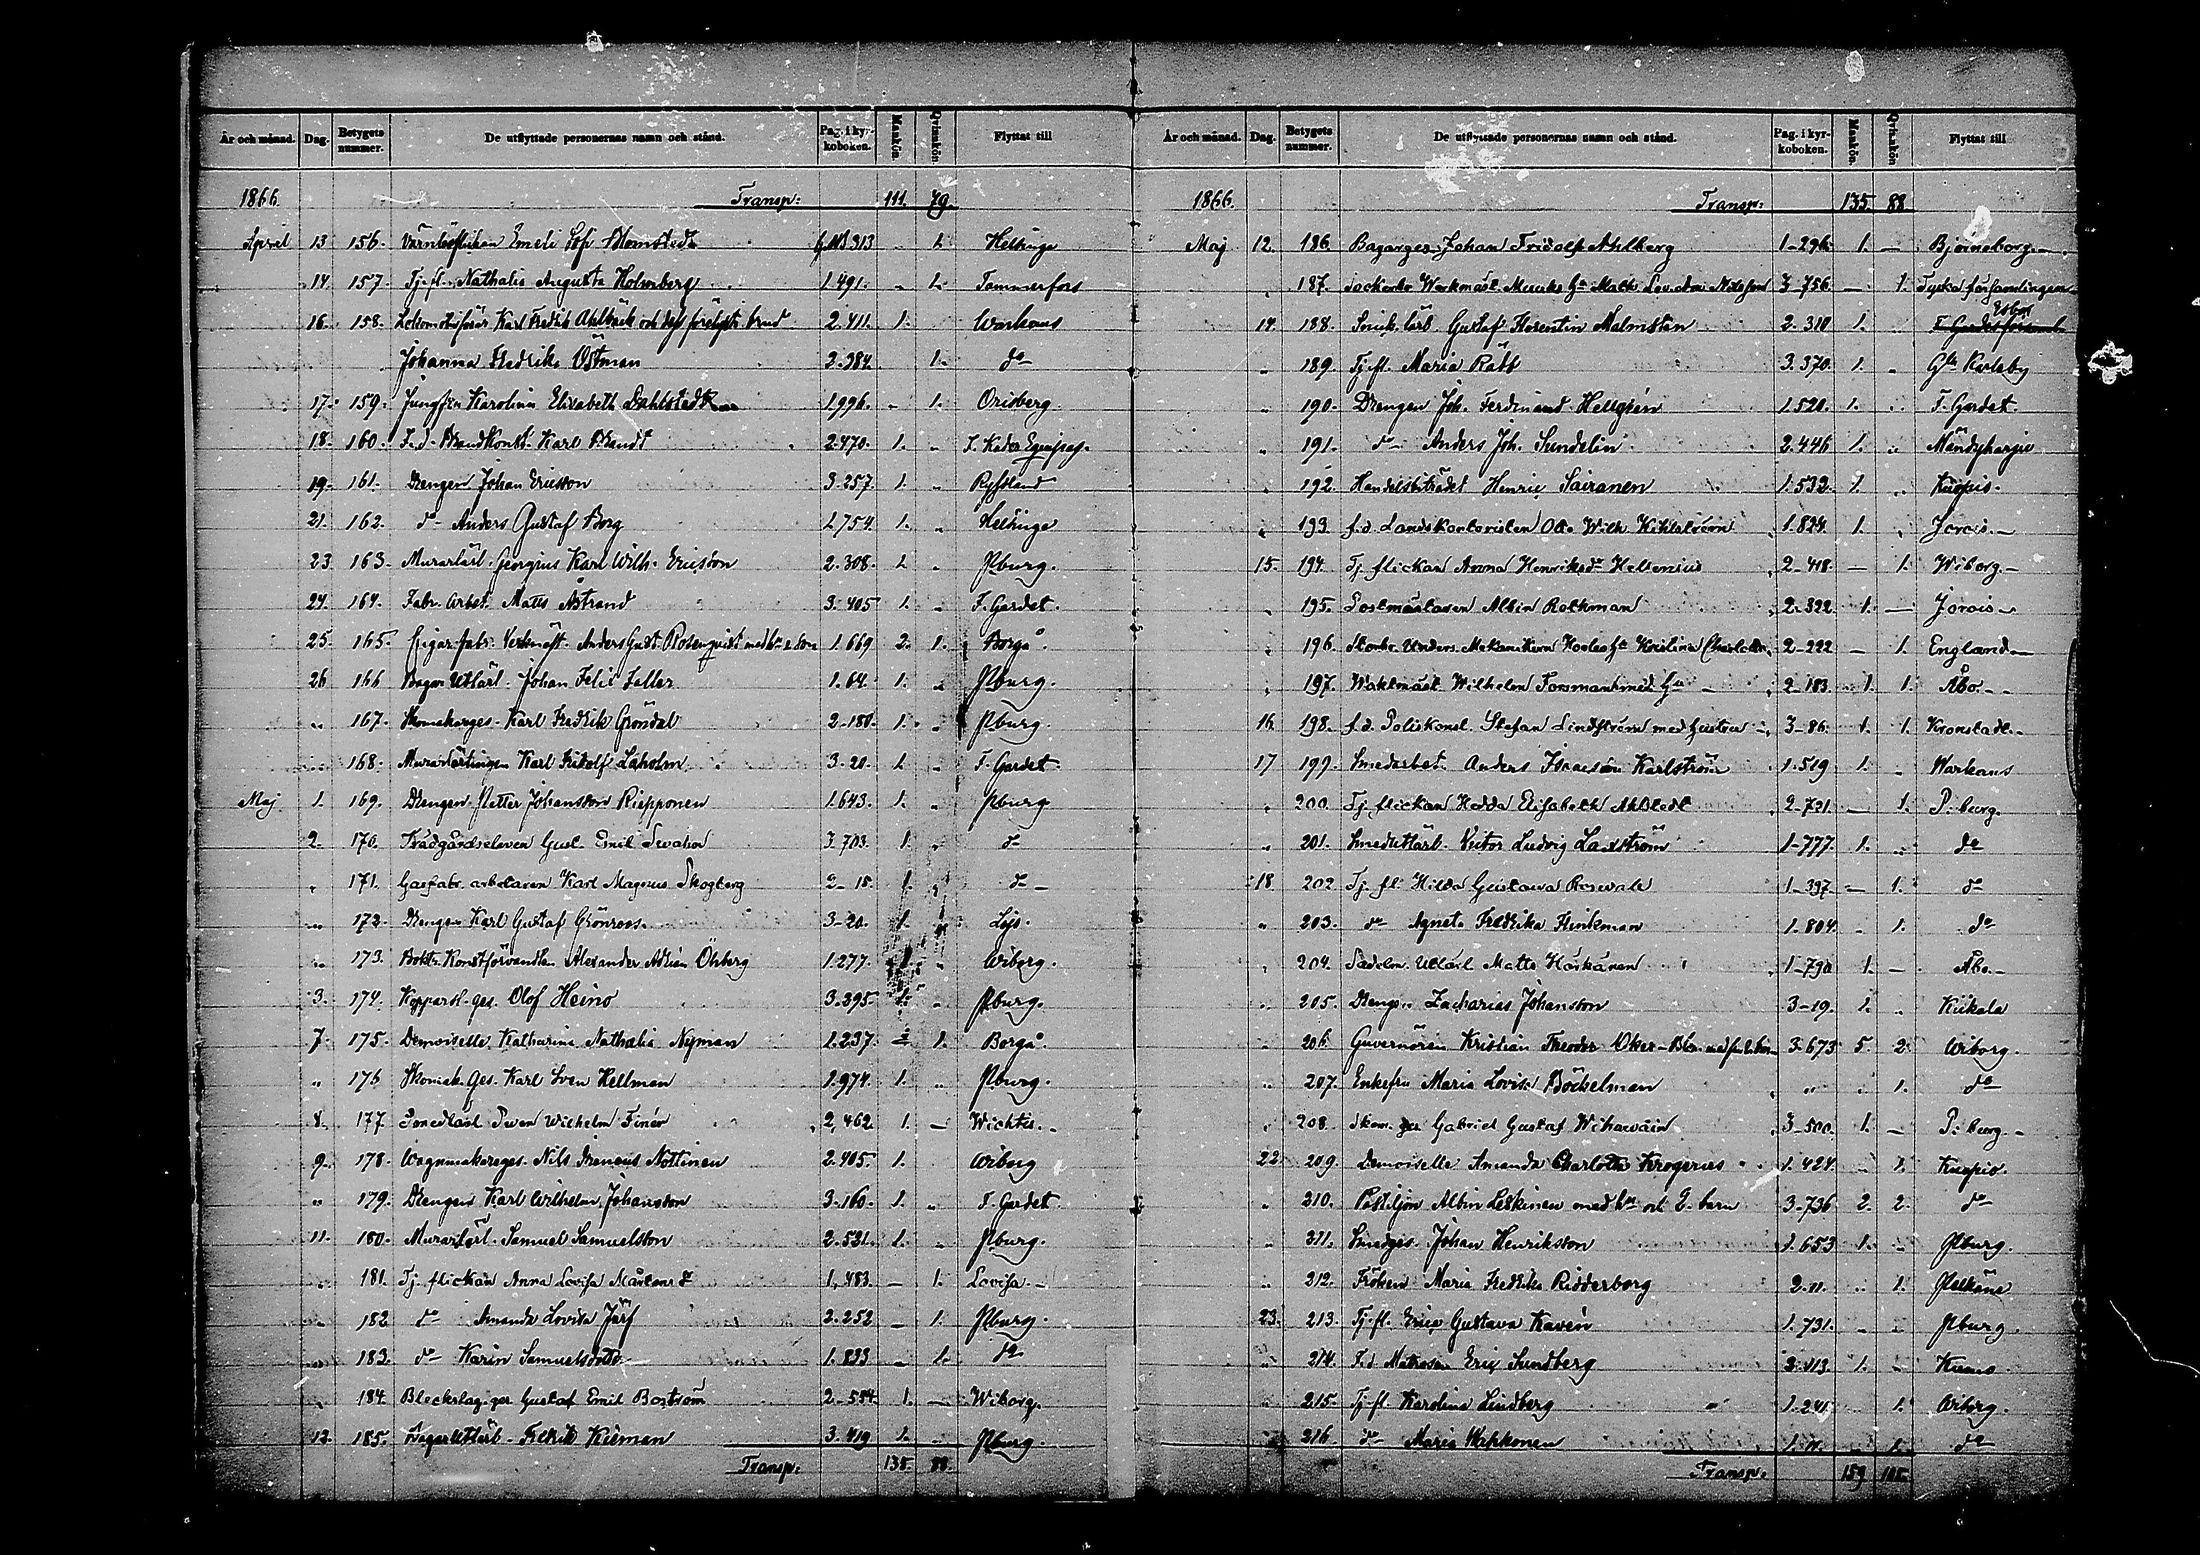 År och månad. Dag. Betygets nummer. De utflyttade personernas namn och stånd. Pag. i kyrkoboken. Mankön. Qvinkön. Flyttat till
1866. Transp: 111. 79.
April 13 156. Emeli Sof. Blomstedt 313 1. Helsinge
14. 157. Tj. fl. Nathalia Augusta Holmberg 1.491. 1. Tammerfors
16. 158. Karl Fredrik Ahlbäck och dess brud 2.411. 1. Warkaus
Johanna Fredrika Östman 2.384. 1. do
17. 159. Jungfru Karolina Elisabeth Dahlstedt 1.996. - 1. Orisberg.
18. 160. F. d. Brandkonst. Karl Brandt 2.470. 1. „ F. Kader Equipag.
19. 161. Drengen Johan Ericsson 3.257. 1. „ Ryssland
21. 162. do Anders Gustaf Borg 1.754. 1. „ Helsinge
23. 163. Murarlärl. Georgius Karl Wilh. Ericsson 2.308. 1. „ Pburg.
24. 164. Fabr. arbet. Matts Åstrand 3.405 1. „ F. Gardet.
25. 165. Cigar fabr. Verkmäst. Anders Gust. Rosenqvist med hu o son 1.669 2. 1. Borgå
26 166 Bagar Utlärl. Johan Felix Faller 1.64. 1. „ Pburg.
„ 167. Skomakarges. Karl Fredrik Gröndal 2-180. 1. „ Pburg.
„ 168. Murarlärlingen Karl Laholm 3-20. 1. „ F. Gardet.
Maj 1. 169. Drengen Petter Johansson Riepponen 1.643. 1. „ Pburg
2. 170. Trädgårdseleven Gust. Emil 3.703. 1. „ do
„ 171. Gasfabr. arbetaren Karl Magnus Skogberg 2-18. 1. „ do
„ 172. Drengen Karl Gustaf Grönroos 3-20. 1. „ Lojo.
„ 173. Boktr. Konstförvandten Alexander Adrian Öhberg 1.277. „ Wiborg.
3. 174. Kopparsl. ges. Olof Heino 3.395. 1. „ Pburg.
7. 175. Demoiselle Katharina Nathalia Nyman 1.237. - 1. Borgå.
„ 176 Skomak. Ges. Karl Sven Hellman 1.974. 1. „ Pburg.
8. 177. Smedlärl. Sven Wilhelm Finér 2,462. 1. — Wichtis.
9. 178. Wagnmakareges. Nils Irenæus Nottinen 2.405. 1. Wiborg
„ 179. Drengen Karl Wilhelm Johansson 3.160. 1. „ F. Gardet.
11. 180. Murarlärl. Samuel Samuelsson 2.531. 1. „ Pburg.
„ 181. Tj. flickan Anna Lovisa Mårtensdr 1.483. — 1. Lovisa.
„ 182. do Amanda Lovisa Järf 2.252 — 1. Pburg.
„ 183. do Karin Samuelsdotter 1.833 — 1. do
184. Bleckslag. ges. Gustaf Emil Boström 2-554. 1. — Wiborg.
12. 185. Bagar Utlärl. Fredrik Kieman 3.419 1. „ Pburg.
Transp: 135. 88.
År och månad. Dag. Betygets nummer. De utflyttade personernas namn och stånd. Pag. i kyrkoboken. Mankön. Qvinkön Flyttat till
1866. Transp: 135. 88
Maj 12. 186. Bagarges. Johan Fridolf Ahlberg 1-296. 1. — Björneborg.
„ 187. Werkmäst. 3-756 — 1. Tyska församlingen
14. 188. Snick. lärl. Gustaf Florentin Malmstén 2.310 1. Esbo
„ 189. Tj. fl. Maria Rätt 3.370. 1. „ Gla Karleby
„ 190. Drengen Joh. Ferdinand Hellgrén 1.520. 1. „ F. Gardet.
„ 191. do Anders Joh. Sundelin 2.446 1. „ Mändyharju
„ 192. Handelsbiträdet Henric Sairanen 1.532. 1. „ Kuopio.
„ 193. f. d. Landskontoristen Otto Wilh. Kihlström 1.824. 1. „ Jorois.
15. 194. Tj. flickan Anna Henriksdr Hellenius 2-418. — 1. Wiborg.
„ 195. Postmästaren Albin Rothman 2-322. 1. — Jorois
„ 196. Mekanikern Kristina Charlotta 2-222 — 1. England
„ 197. Waktmäst. Wilhelm Forsman med hu 2-183. 1. 1. Åbo.
16. 198. f. d. Poliskonst. Stefan Lindström med hustru 3-86. 1. 1. Kronstadt.
17 199. Smedarbet. Anders Israelsson Karlström 1.519 1. „ Warkaus
„ 200. Tj. flickan Hedda Elisabeth Ahlstedt 2-721. — 1. P:burg.
„ 201. Smedutlärl. Victor Ludvig Laxström 1-777. 1. „ do
18. 202. Tj. fl. Hilda Gustava Rosvall 1-397. — 1. do
„ 203. do Agneta Fredrika Flinkman 1.804. „ 1. do
„ 204. Sadelm. Utlärl. Matts Härkänen 1-790 1. — Åbo.
„ 205. Drengen Zacharias Johansson 3-19. 1. „ Kiikala
„ 206. Guvernören Kristian Theodor Oker-Blom med fru o barn 3.673 5. 2. Wiborg.
„ 207. Enkefru Maria Lovisa Böckelman „ „ 1. do
„ 208. Skom. ges Gabriel Gustaf Wiherväin 3-500. 1. — P:burg.
22. 209. Demoiselle Amanda Charlotta Krogerus 1.424. „ 1. Kuopio.
„ 210. Postiljon Albin Leskinen med hu och 2 barn 3-736 2. 2. do
„ 211. Smedges. Johan Henriksson 1.653 1. „ Pburg.
„ 212. Fröken Maria Fredrika Ridderborg 2.11. „ 1. Pelkäne
23. 213. Tj. fl. Erica Gustava Kavén 1.731. „ „ Pburg.
„ 214. F. d. Matrosen Eric Sundberg 2.113. 1. „ Kumo
„ 215. Tj. fl. Karolina Lindberg 1.241. 1. Wiborg.
„ 216. do Maria Wahkonen 1.11. — 1. do
Transp: 159 105.